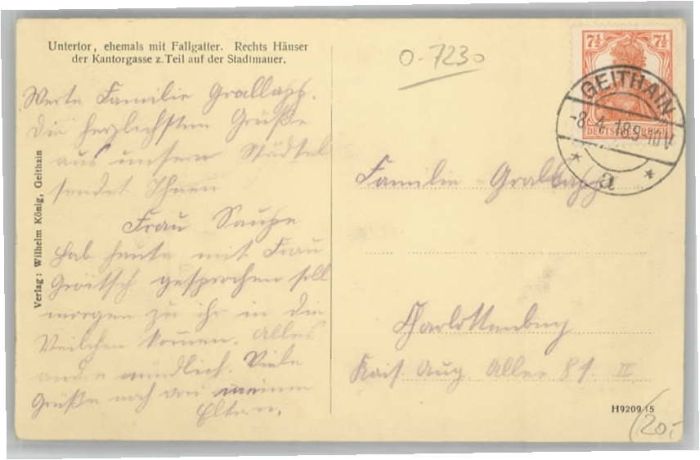 Untertor, ehemals mit Fallgatter. Rechts Häuser
der Kantorgasse z. Teil auf der Stadtmauer.
0-7230
7½ 7½
DEUTSCHES REICH
GEITHAIN
-8.4.18 9-10V
* a *
Werte Familie Grallapp.
Die herzlichsten Grüße
aus unserm Städtel
sendet Ihnen
Frau Saupe
Hab heute mit Frau
gesprochen soll
morgen zu ihr in die
Veilchen kommen. Alles
andre mündlich. Viele
Grüße noch von meinen
Eltern.
Familie Grallapp
Charlottenburg
Kais. Aug. Allee 81 II
Verlag: Wilhelm König, Geithain
H9209 15
20,-